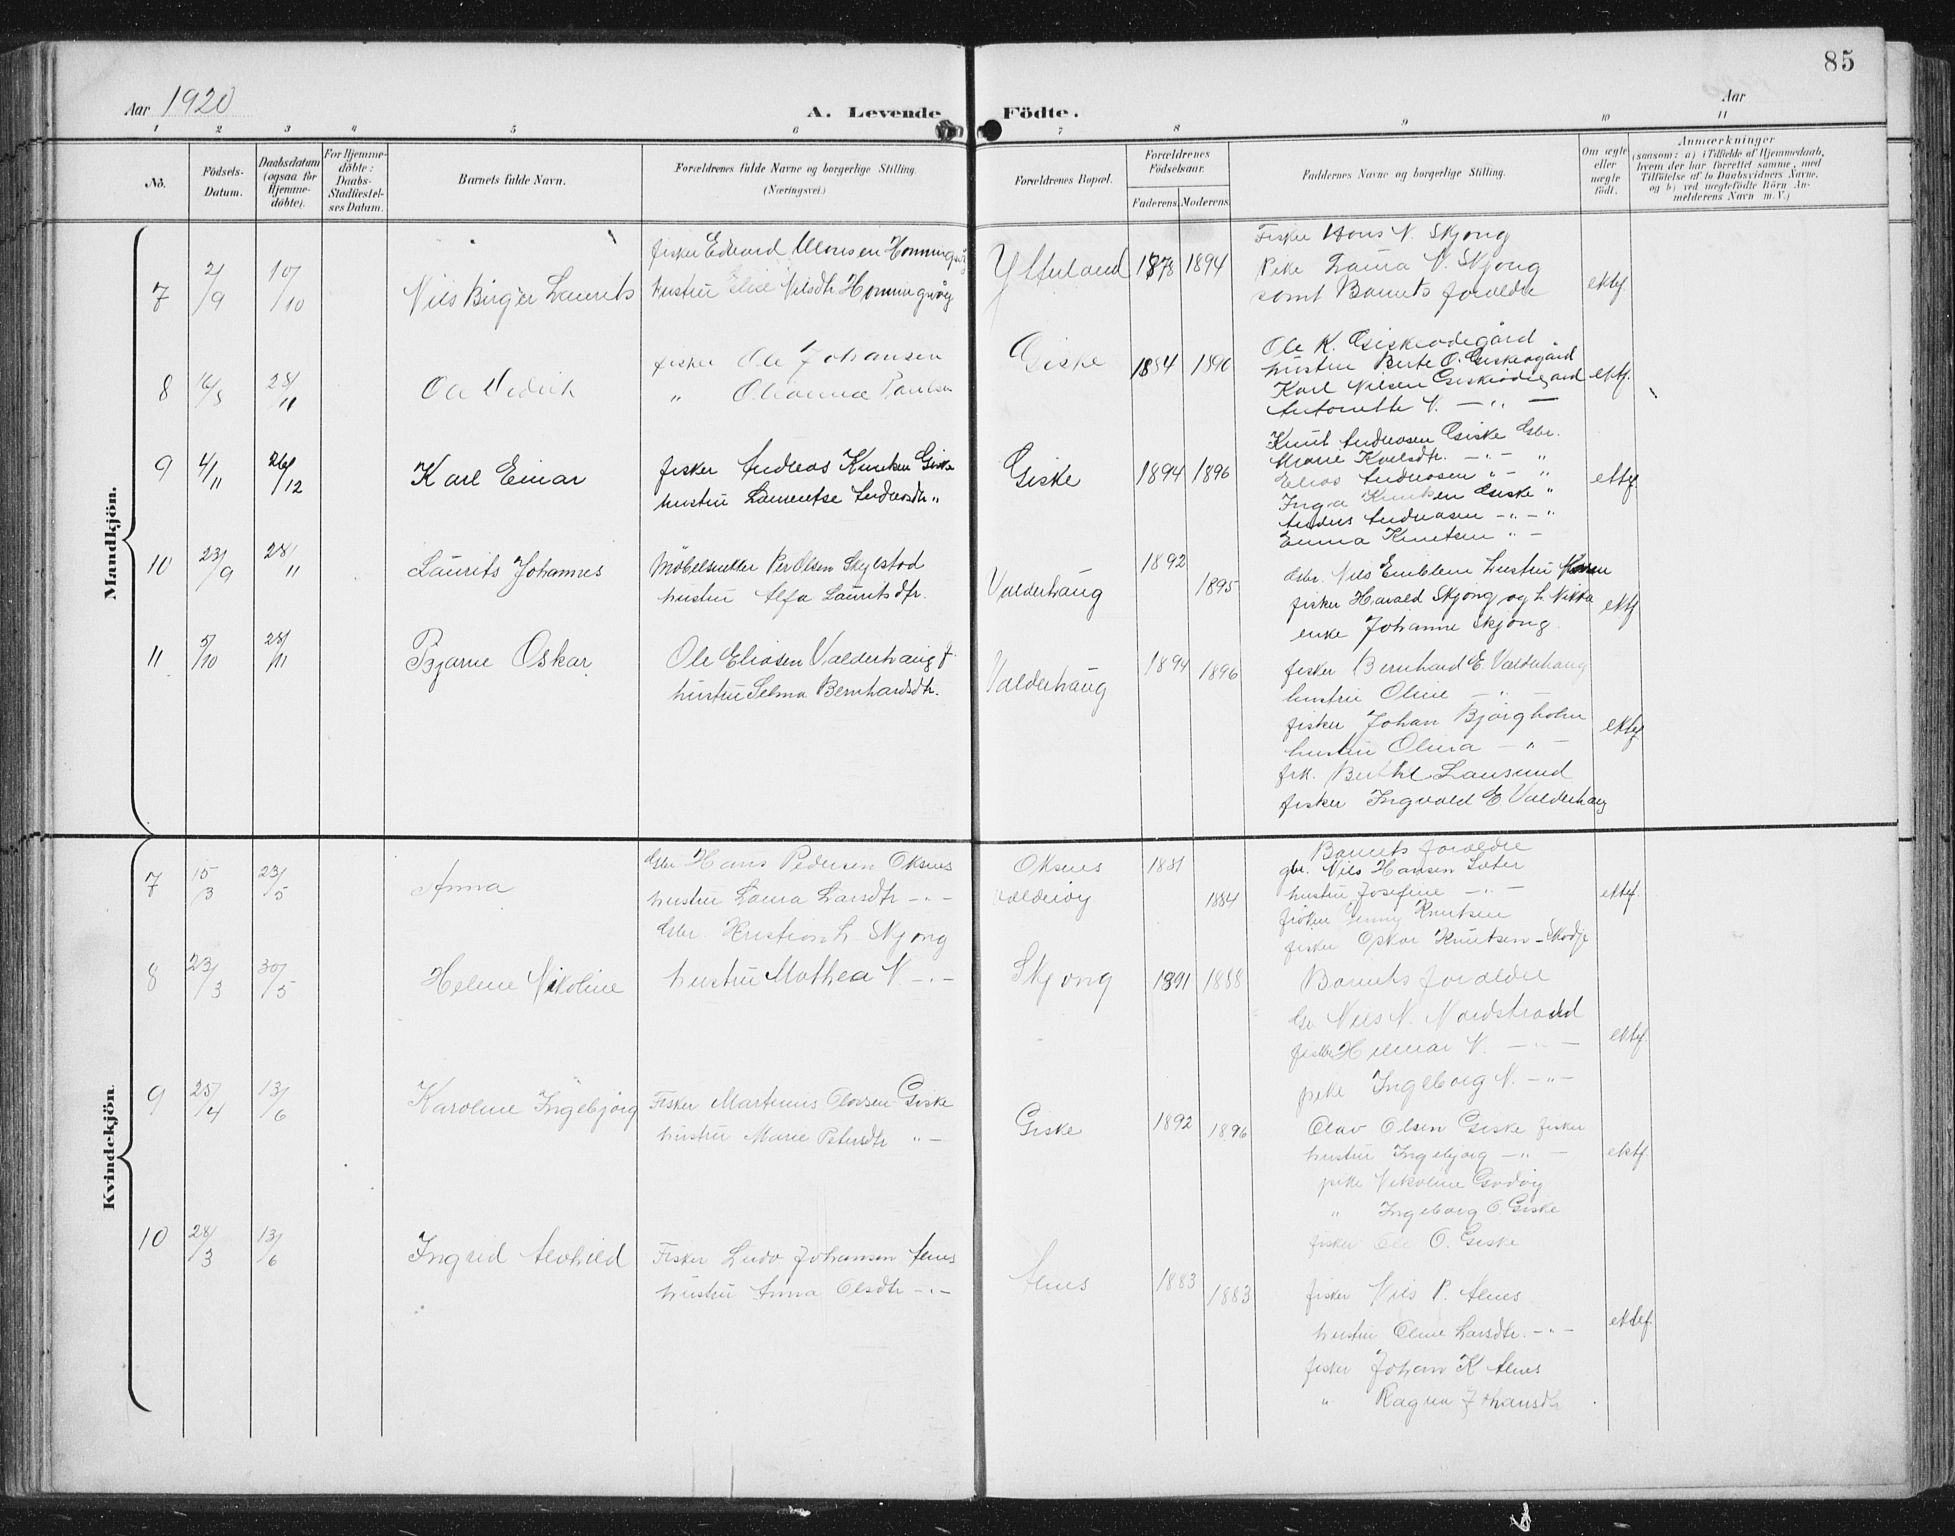 85
Aar 1920
A. Levende
Födte.
Aar
1 2 3 4 5 6 7 8 9 10 11
No.
Födsels-
Datum.
Daabsdatum
(ogsaa for
Hjemme-
döbte).
For Hjemme-
döbte:
Daabs-
Stadfæstel-
ses Datum.
Barnets fulde Navn.
Forældrenes fulde Navne og borgerlige Stilling.
(Næringsvei.)
Forældrenes Bopæl.
Forældrenes
Födselsaar.
Faderens. Moderens.
Faddernes Navne og borgerlige Stilling.
Om ægte
eller
uægte
født.
Anmærkninger
(saasom: a) i Tilfælde af Hjemmedaab,
hvem der har forrettet samme, med
Tilföielse af to Daabsvidners Navne,
og b) ved uægtefödte Börn An-
melderens Navn m.V.)
Mandkjön.
7 2/9 10/10 Nils Birger Laurits
fisker Edvard Monsen Honningsvåg
hustru Elise Nilsdtr Honningsvåg
Ytterland 1878 1894
Fisker Hans N. Skjong
Pike Laura N. Skjong
samt Barnets foreldre
ektef.
8 16/5 28/11 Ole Vedick
fisker Ole Johansen
" Olianna Paulsen
Giske 1884 1896
Ole K. Giskeødegård
hustru Berte O. Giskeødgård
Karl Nilsen Giskeødegård
Antonette N. — " —
ektf.
9 4/11 26/12 Karl Einar
fisker Andreas Knutsen Giske
hustru Laurentse Andreasdtr "
Giske 1894 1896
Knut Andreasen Giske Gbr.
Marie Karlsdtr. — " — "
Elias Andreasen " — "
Inga Knutsen Giske "
Anders Andreasen — " — "
Emma Knutsen " —
ektef
10 23/9 28/11 Laurits Johannes
Möbelsnekker Per Olsen Skylstad
hustru Alfa Lauritsdtr.
Valderhaug 1892 1895
Gbr. Nils Emblem hustru
fisker Harald Skjong og h. Nikka
enke Johanne Skjong.
ektf
11 5/10 28/11 Bjarne Oskar
Ole Eliasen Valderhaug f.
hustru Selma Bernhardsdtr.
Valderhaug 1894 1896
fisker Bernhard E. Valderhaug
hustru Oline — " —
fisker Johan Bjørgholm
hustru Olina — " —
frk. Berthe Lausund
fisker Ingvald E Valderhaug
ektef
Kvindekjön.
7 15/3 23/5 Anna
Gbr Hans Pedersen Oksnes
hustru Laura Larsdtr — " —
Oksnes
Valderøy 1881 1884
Barnets foreldre
gbr. Nils Hansen Sæter
hustru Josefine — " —
frøken Jenny Knutsen
fisker Oskar Knutsen — Skodje
ektef.
8 23/3 30/5 Helene Nikoline
Gbr. Kristian L. Skjong
hustru Mathea N. — " —
Skjong 1891 1888
Barnets foreldre
Gbr Nils N. Nordstrand
fisker Hilmar N. — " —
pike Ingeborg N. — " —
ektef.
9 25/4 13/6 Karoline Ingebjørg
Fisker Martinus Olavsen Giske
hustru Marie Petersdtr " —
Giske 1892 1896
Olav Olsen Giske fisker
hustru Ingebjørg — " —
pike Nikoline Godøy
" Ingeborg O. Giske
fisker Ole O. Giske
ektf
10 28/3 13/6 Ingrid Alvhild
Fisker Ludv Johansen Alnes
hustru Anna Olsdtr — " —
Alnes 1883 1883
fisker Nils P. Alnes
hustru Oline Larsdtr. — " —
fisker Johan K Alnes
" Ragna Johansdtr
ektef.